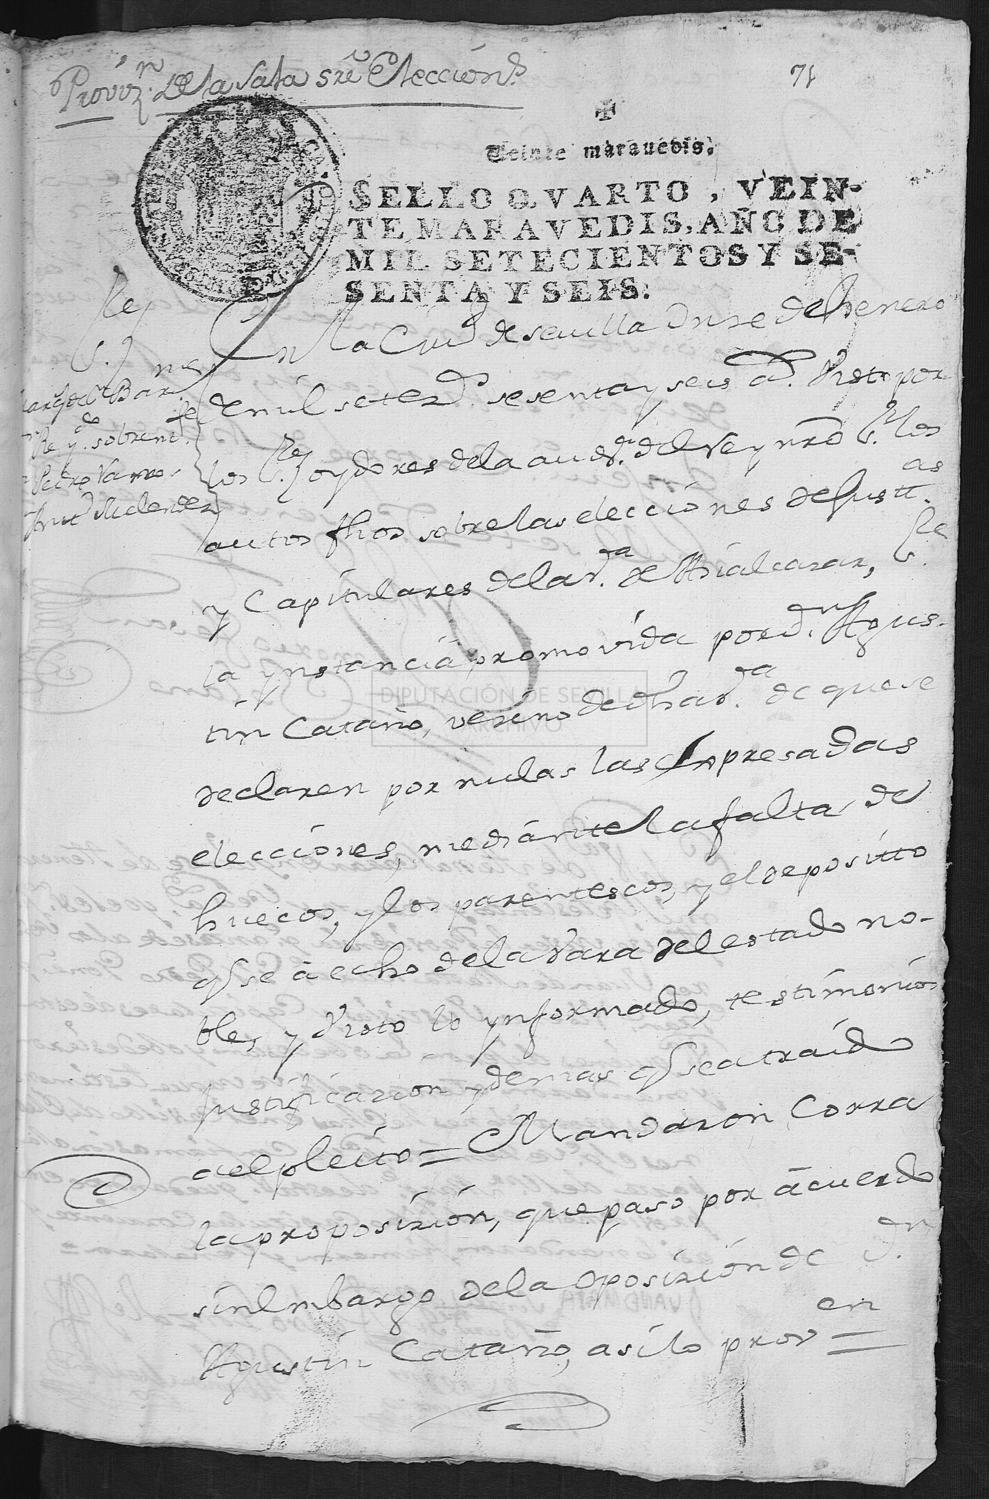 Provizn. De la Sala sre Eleccions.
71
Veinte maravedis.
SELLO QVARTO, VEIN-
TE MARAVEDIS, AÑO DE
MIL SETECIENTOS Y SE-
SENTA Y SEIS.
En la Ciud. de sevilla Onze de henero
de mil setezs. sesenta y seis as. Visto por
los Sres. oydores de la audca. del Rey nro Sr. los
autos fhos sobre las elecciones de Justtas.
y Capitulares de la va. de Hialcazar, Sre
la ynstancia promovida por dn. Agus-
tin Cataño, vezino de dha va. de que se
declaren por nulas las expresadas
elecciones, mediante la falta de
huecos, y los parentescos, y el depositto
qe se a echo de la Vara del estado no-
ble, y Visto lo ynformado, testimonios
justificazion y demas qe se a traido
a el pleito = Mandaron Corra
la proposizion, que paso por acuerdo
sin Embargo de la Oposizion de dn.
Agustin Cataño, asi lo proveen =
Sres.
Pedro Navarro
DIPUTACIÓN DE SEVILLA
ARCHIVO